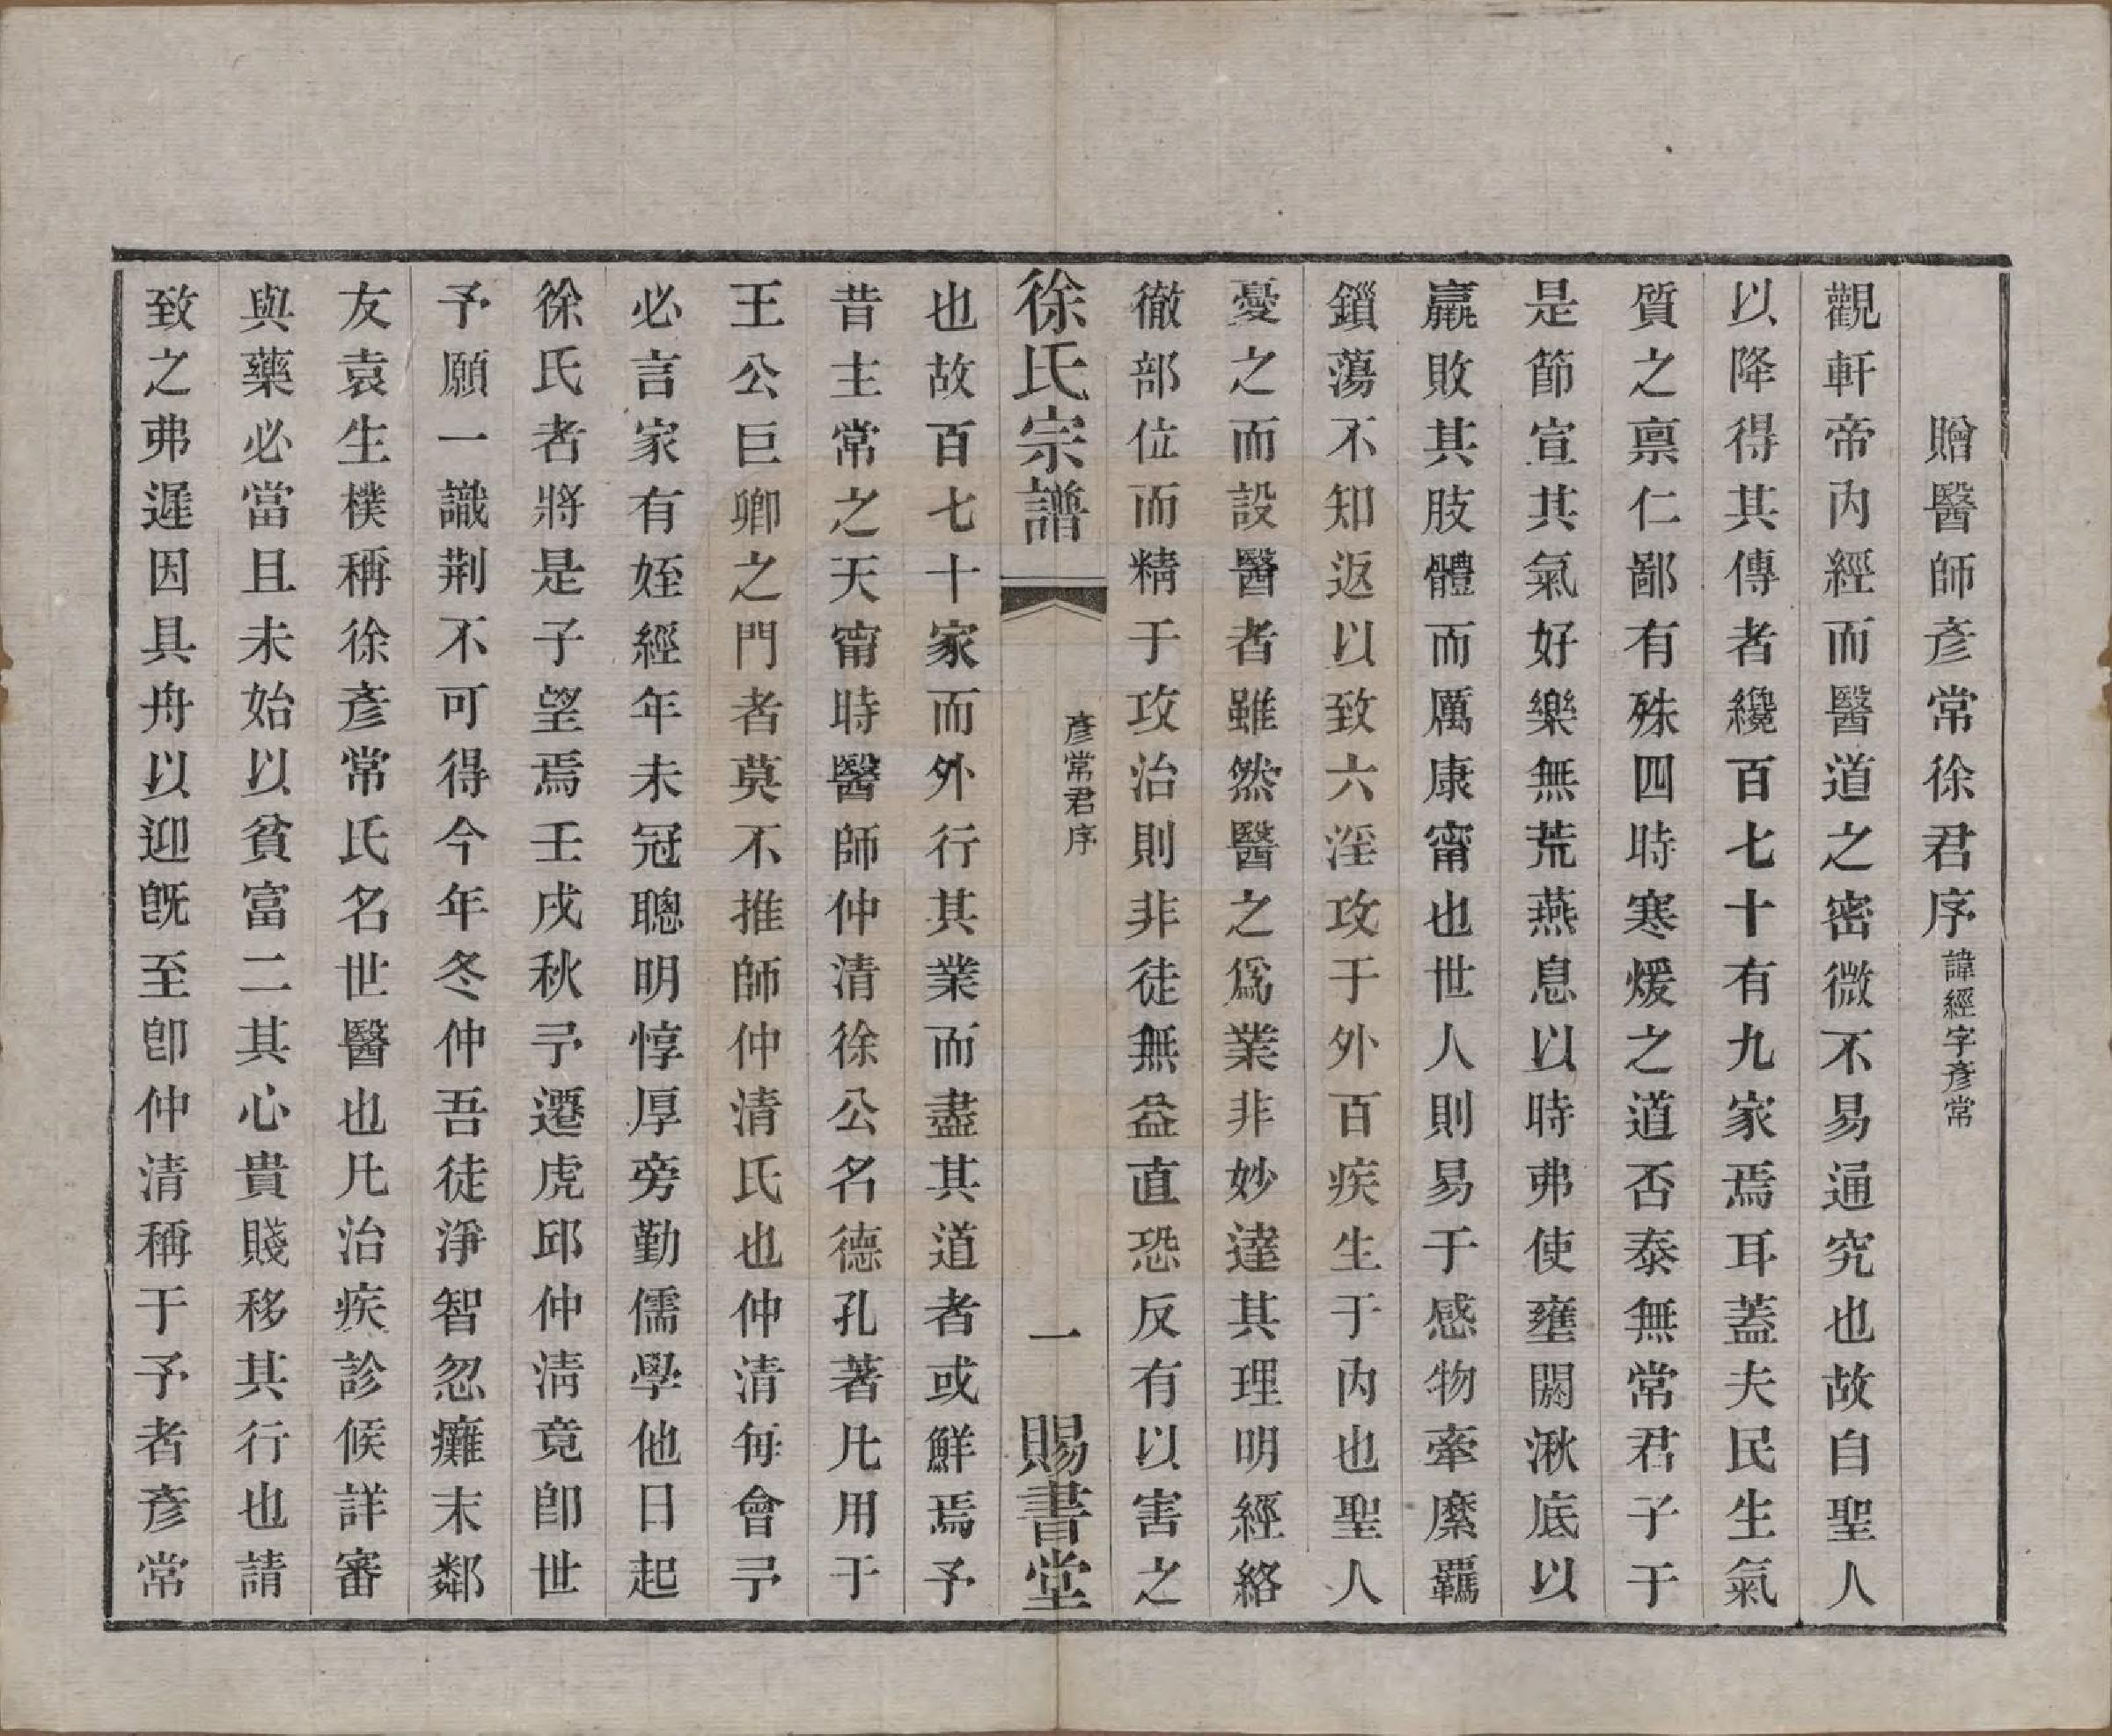 贈醫師彥常徐君序諱經字彥常
觀軒帝內經而醫道之密微不易通究也故自聖人
以降得其傳者纔百七十有九家焉耳蓋夫民生氣
質之禀仁鄙有殊四時寒煖之道否泰無常君子于
是節宣其氣好樂無荒燕息以時弗使壅閼湫底以
羸敗其肢體而厲康甯也世人則易于感物牽縻羈
鎖蕩不知返以致六淫攻于外百疾生于內也聖人
憂之而設醫者雖然醫之爲業非妙達其理明經絡
徹部位而精于攻治則非徒無益直恐反有以害之
徐氏宗譜
彥常君序
一
賜書堂
也故百七十家而外行其業而盡其道者或鮮焉予
昔主常之天甯時醫師仲清徐公名德孔著凡用于
王公巨卿之門者莫不推師仲清氏也仲清每會予
必言家有姪經年未冠聰明惇厚旁勤儒學他日起
徐氏者將是子望焉壬戌秋予遷虎邱仲淸竟卽世
予願一識荆不可得今年冬仲吾徒淨智忽癱末鄰
友袁生樸稱徐彥常氏名世醫也凡治疾診候詳審
與藥必當且未始以貧富二其心貴賤移其行也請
致之弗遲因具舟以迎旣至卽仲清稱于予者彥常